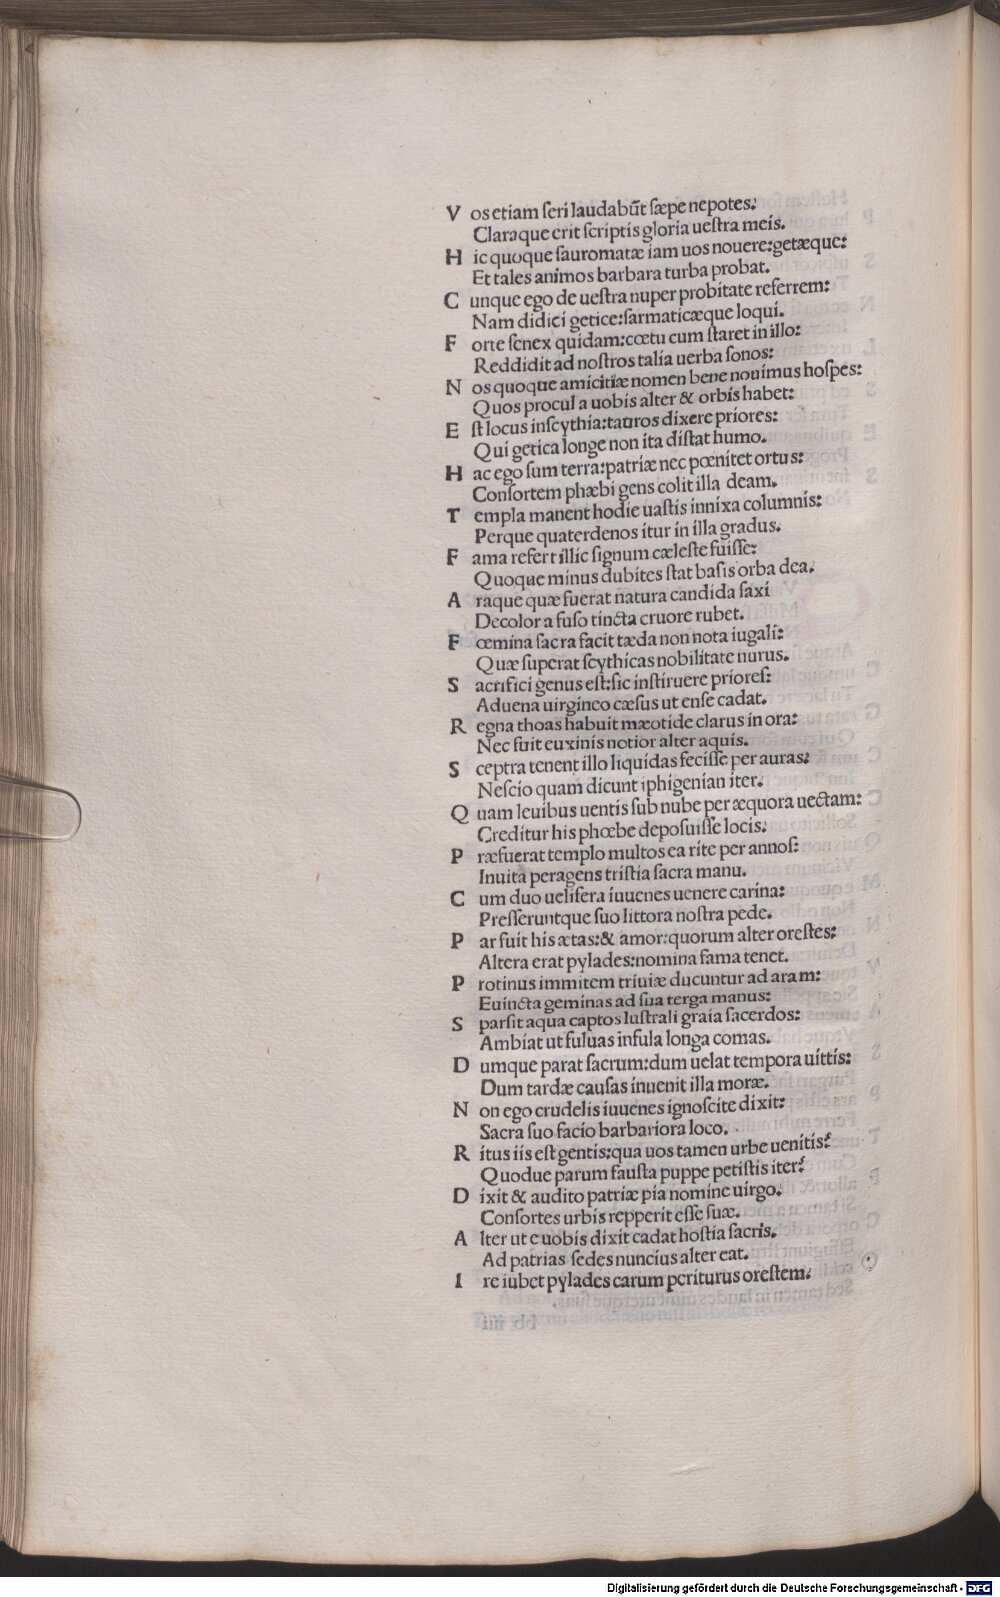 V os etiam ſeri laudabũt ſæpe nepotes:
Claraque erit ſcriptis gloria ueſtra meis.
H ic quoque ſauromatæ iam uos nouere:getæque:
Et tales animos barbara turba probat.
C unque ego de ueſtra nuper probitate referrem:
Nam didici getice:ſarmaticæque loqui.
F orte ſenex quidam:cœtu cum ſtaret in illo:
Reddidit ad noſtros talia uerba ſonos:
N os quoque amicitiæ nomen bene nouimus hoſpes:
Quos procul a uobis alter & orbis habet:
E ſt locus inſcythia:tauros dixere priores:
Qui getica longe non ita diſtat humo.
H ac ego ſum terra:patriæ nec pœnitet ortus:
Conſortem phæbi gens colit illa deam.
T empla manent hodie uaſtis innixa columnis:
Perque quaterdenos itur in illa gradus.
F ama refert illic ſignum cæleſte fuiſſe:
Quoque minus dubites ſtat baſis orba dea.
A raque quæ fuerat natura candida ſaxi
Decolor a fuſo tincta cruore rubet.
F œmina ſacra facit tæda non nota iugali:
Quæ ſuperat ſcythicas nobilitate nurus.
S acrifici genus eſt:ſic inſtituere prioreſ:
Aduena uirgineo cæſus ut enſe cadat.
R egna thoas habuit mæotide clarus in ora:
Nec fuit euxinis notior alter aquis.
S ceptra tenent illo liquidas feciſſe per auras:
Neſcio quam dicunt iphigenian iter.
Q uam leuibus uentis ſub nube per æquora uectam:
Creditur his phœbe depoſuiſſe locis:
P ræfuerat templo multos ea rite per annoſ:
Inuita peragens triſtia ſacra manu.
C um duo uelifera iuuenes uenere carina:
Preſſeruntque ſuo littora noſtra pede.
P ar fuit his ætas:& amor:quorum alter oreſtes:
Altera erat pylades:nomina fama tenet.
P rotinus immitem triuiæ ducuntur ad aram:
Euincta geminas ad ſua terga manus:
S parſit aqua captos luſtrali graia ſacerdos:
Ambiat ut fuluas infula longa comas.
D umque parat ſacrum:dum uelat tempora uittis:
Dum tardæ cauſas inuenit illa moræ.
N on ego crudelis iuuenes ignoſcite dixit:
Sacra ſuo facio barbariora loco.
R itus iis eſt gentis:qua uos tamen urbe uenitis?
Quodue parum fauſta puppe petiſtis iter?
D ixit & audito patriæ pia nomine uirgo.
Conſortes urbis repperit eſſe ſuæ.
A lter ut e uobis dixit cadat hoſtia ſacris.
Ad patrias ſedes nuncius alter eat.
I re iubet pylades carum periturus oreſtem:
Digitalisierung gefördert durch die Deutsche Forschungsgemeinschaft - DFG